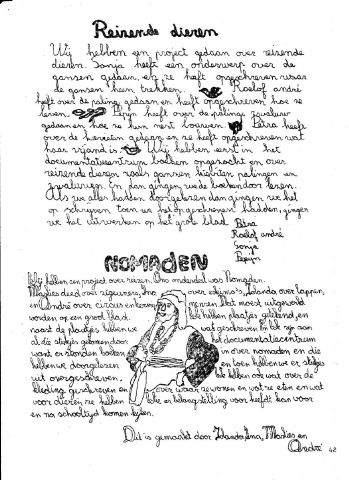 Reizende dieren
Wij hebben een project gedaan over reizende
dieren. Sonja heeft een onderwerp over de
ganzen gedaan, en ze heeft opgeschreven waar
de ganzen heen trekken. Roelof andré
heeft over de paling gedaan en heeft opgeschreven hoe ze
leven. Pepijn heeft over de zwaluw
gedaan en hoe ze hun nest bouwen. Petra heeft
over de kievieten gedaan en ze heeft opgeschreven wat
haar vijand is. Wij hebben eerst in het
documentatiecentrum boeken opgezocht en over
reizende dieren zoals ganzen kievieten palingen en
zwaluwen. En dan gingen we de boeken door lezen.
Als we alles hadden doorgelezen dan gingen we het
op schrijven toen we het opgeschreven hadden, gingen
we het uitwerken op het grote blad.
Petra
Roelof andré
Sonja
Pepijn
NOMADEN
Wij hebben een project over reizen. Ons onderdeel was Nomaden.
Marlies deed over zigeuners, Ina over eskimo's, Jolanda over lappen,
en André over circus en kermis mensen. Dat moest uitgevoerd
worden op een groot blad. We hebben plaatjes getekend, en
naast de plaatjes hebben we wat geschreven. En we zijn aan
al die stukjes gekomen door het documentatiecentrum
want er stonden boeken in over nomaden en die
hebben we doorgelezen en toen hebben we er stukjes
uit overgeschreven. We hebben ook wat over de
kleding geschreven en over waar ze wonen en wat ze eten en wat
voor dieren ze hebben. Wie er belangstelling voor heeft kan voor
en na schooltijd komen kijken.
Dit is gemaakt door Jolanda, Ina, Marlies en
André
42